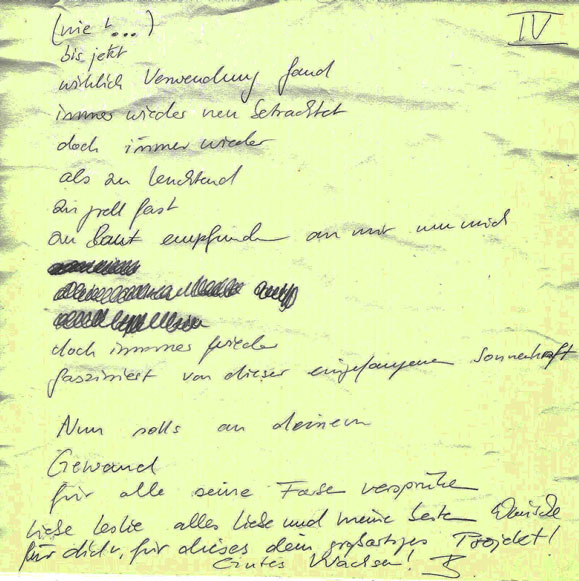 IV
(nie t...)
bis jetzt
wirklich Verwendung fand
immer wieder neu betrachtet
doch immer wieder
als zu leuchtend
zu grell fast
zu laut empfunden an mir um mich
doch immer wieder
fasziniert von dieser eingefangenen Sonnenkraft
Nun solls an deinem
Gewand
für alle seine Farbe versprühen
Liebe Leslie alles Liebe und meine besten Wünsche
für dich, für dieses dein großartiges Projekt!
Gutes Wachsen!